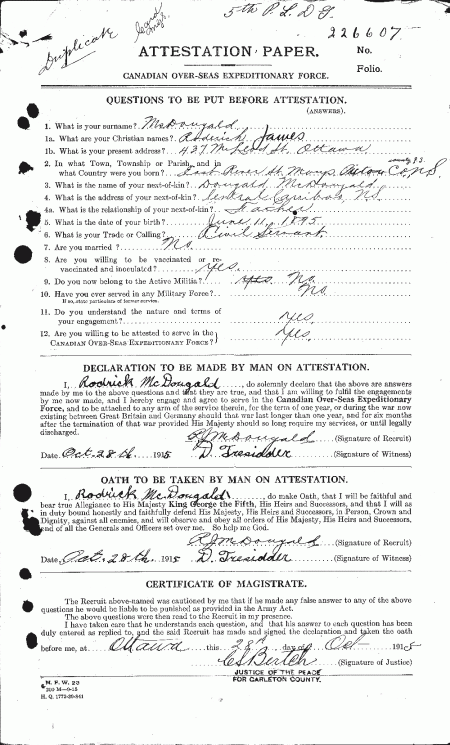 Duplicate
5th P. L. D. G.
226607
ATTESTATION PAPER.
No.
Folio.
CANADIAN OVER-SEAS EXPEDITIONARY FORCE.
QUESTIONS TO BE PUT BEFORE ATTESTATION.
(ANSWERS).
1. What is your surname? McDougald
1a. What are your Christian names? Roderick James
1b. What is your present address? 437 McLeod St. Ottawa
2. In what Town, Township or Parish, and in
what Country were you born? East River St. Marys, Pictou Co NS
3. What is the name of your next-of-kin? Dougald McDougald
4. What is the address of your next-of-kin? Central Caribou, NS
4a. What is the relationship of your next-of-kin? Father
5. What is the date of your birth? June 11, 1895
6. What is your Trade or Calling? Civil Servant
7. Are you married? No.
8. Are you willing to be vaccinated or re-
vaccinated and inoculated? yes.
9. Do you now belong to the Active Militia? yes. No.
10. Have you ever served in any Military Force? No.
If so, state particulars of former service.
11. Do you understand the nature and terms of
your engagement? yes.
12. Are you willing to be attested to serve in the
CANADIAN OVER-SEAS EXPEDITIONARY FORCE? yes.
DECLARATION TO BE MADE BY MAN ON ATTESTATION.
I, Rodrick McDougald, do solemnly declare that the above are answers
made by me to the above questions and that they are true, and that I am willing to fulfil the engagements
by me now made, and I hereby engage and agree to serve in the Canadian Over-Seas Expeditionary
Force, and to be attached to any arm of the service therein, for the term of one year, or during the war now
existing between Great Britain and Germany should that war last longer than one year, and for six months
after the termination of that war provided His Majesty should so long require my services, or until legally
discharged.
RJMcDougald (Signature of Recruit)
Date Oct. 28th 1915 D. Tresidder (Signature of Witness)
OATH TO BE TAKEN BY MAN ON ATTESTATION.
I, Rodrick McDougald, do make Oath, that I will be faithful and
bear true Allegiance to His Majesty King George the Fifth, His Heirs and Successors, and that I will as
in duty bound honestly and faithfully defend His Majesty, His Heirs and Successors, in Person, Crown and
Dignity, against all enemies, and will observe and obey all orders of His Majesty, His Heirs and Successors,
and of all the Generals and Officers set over me. So help me God.
RJMcDougald (Signature of Recruit)
Date Oct. 28th 1915 D. Tresidder (Signature of Witness)
CERTIFICATE OF MAGISTRATE.
The Recruit above-named was cautioned by me that if he made any false answer to any of the above
questions he would be liable to be punished as provided in the Army Act.
The above questions were then read to the Recruit in my presence.
I have taken care that he understands each question, and that his answer to each question has been
duly entered as replied to, and the said Recruit has made and signed the declaration and taken the oath
before me, at Ottawa this 28th day of Oct 1915
(Signature of Justice)
JUSTICE OF THE PEACE
FOR CARLETON COUNTY.
M. F. W. 23
200 M—9-15
H. Q. 1772-39-841